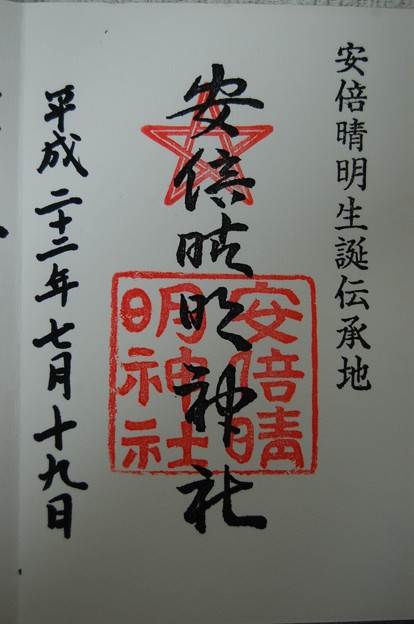 安倍晴明生誕伝承地
安倍晴明神社
安倍晴
明神社
平成二十二年七月十九日